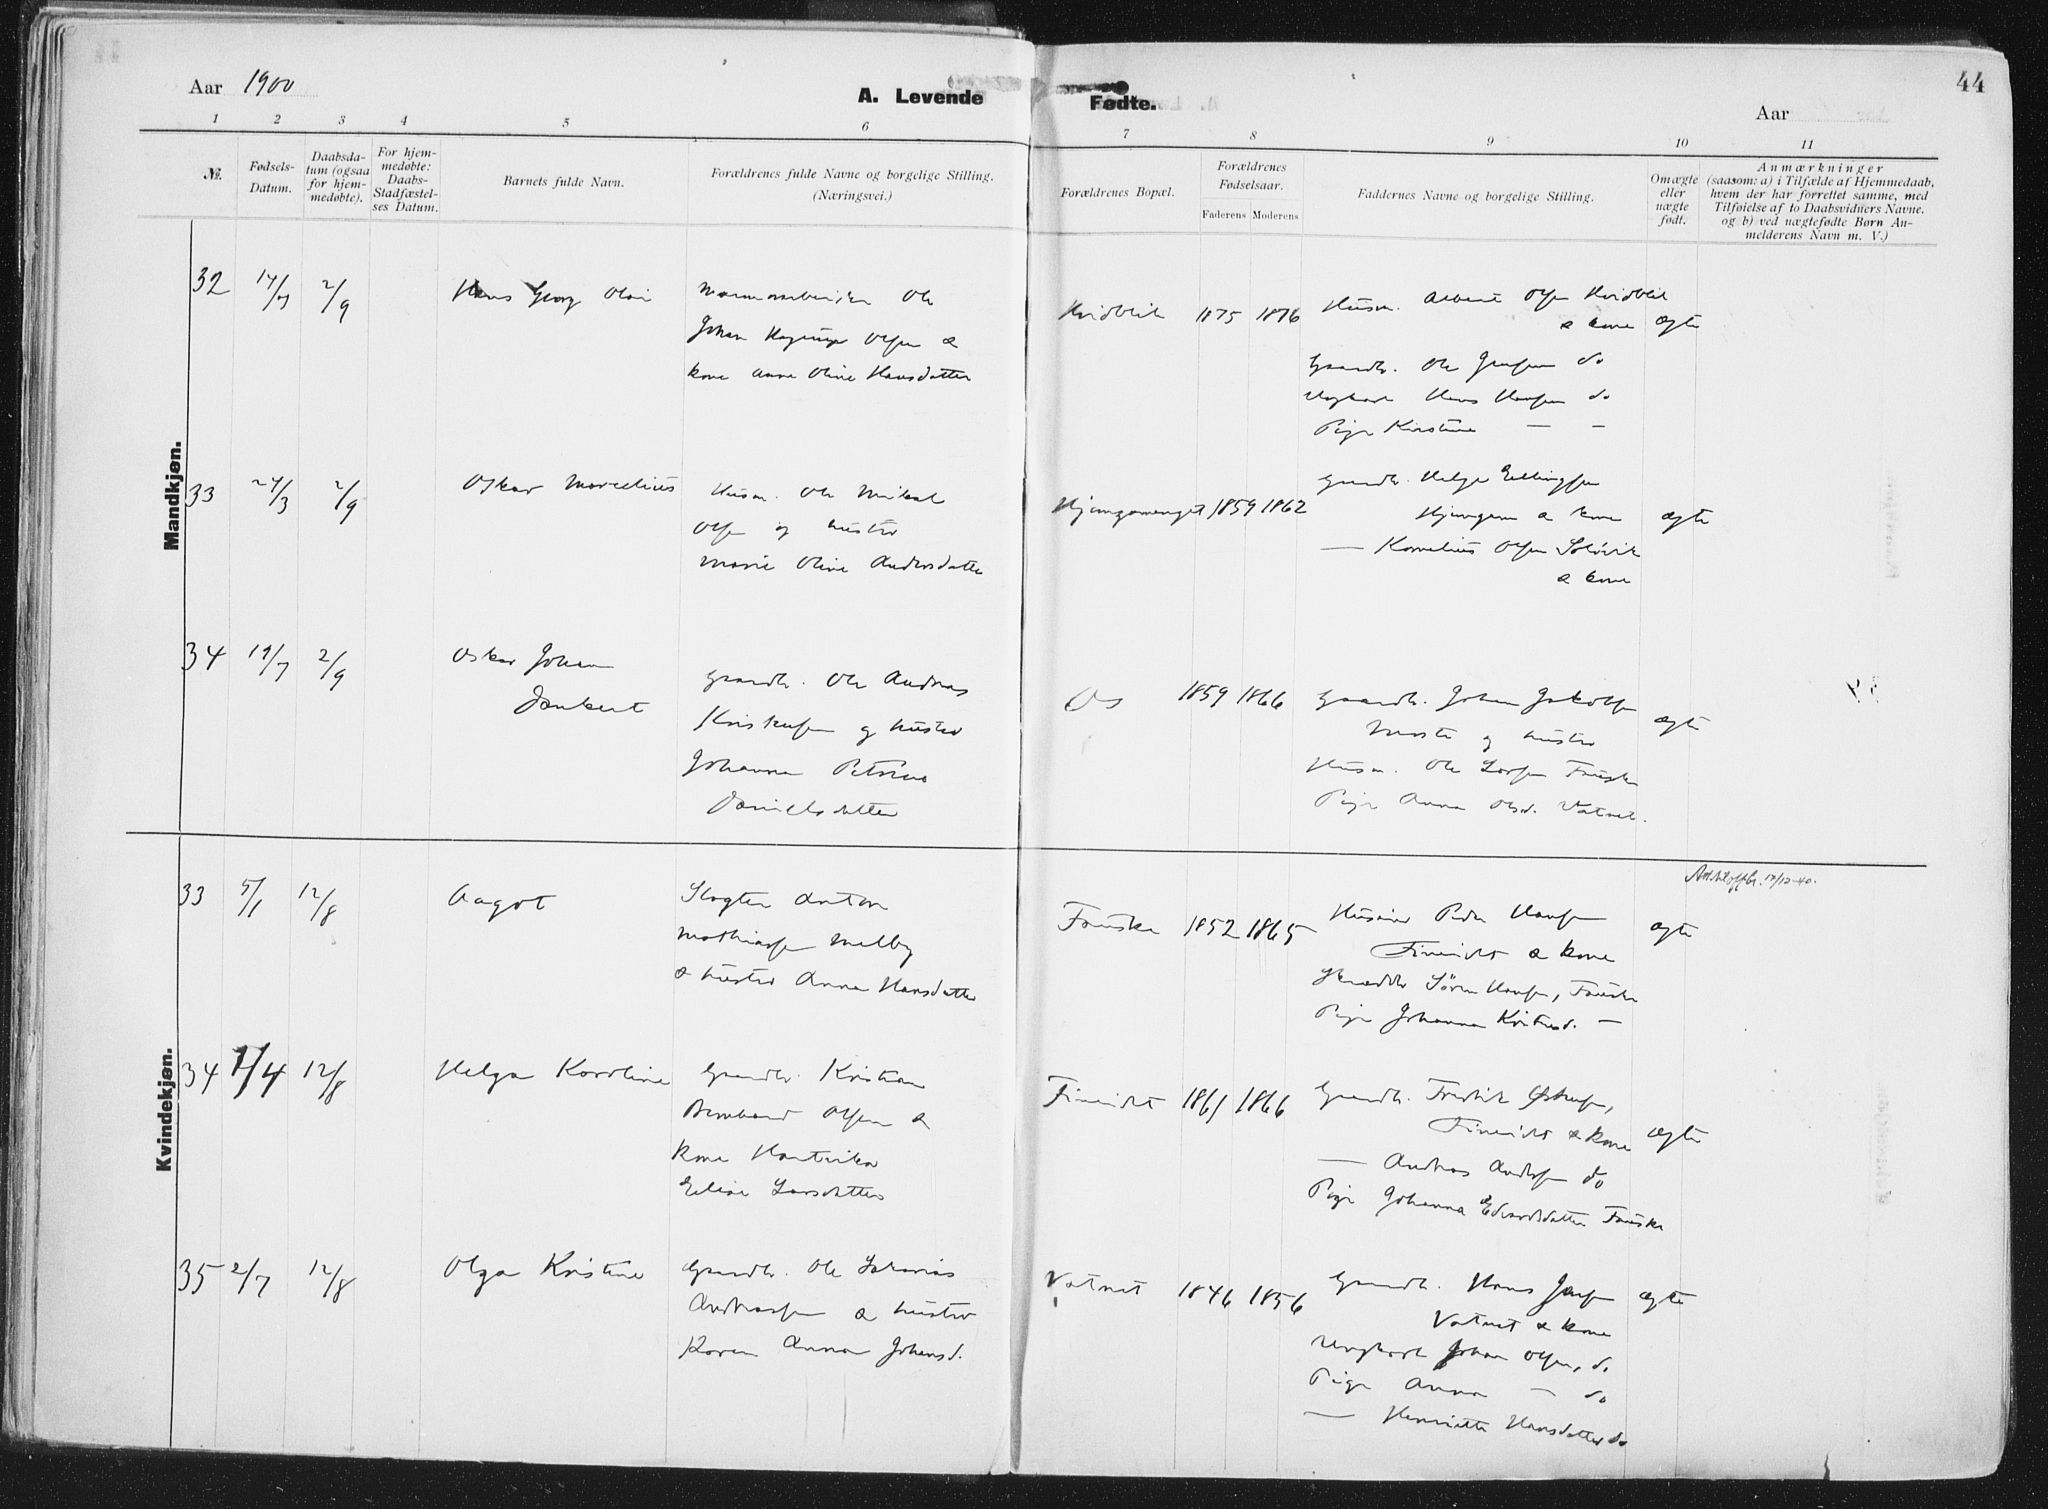 Aar 1900
A. Levende Fødte.
Aar
44
1 2 3 4 5 6 7 8 9 10 11
№.
Fødsels-
Datum.
Daabsda-
tum (ogsaa
for hjem-
medøbte).
For hjem-
medøbte:
Daabs-
Stadfæstel-
ses Datum.
Barnets fulde Navn.
Forældrenes fulde Navne og borgelige Stilling.
(Næringsvei.)
Forældrenes Bopæl.
Forældrenes
Fødselsaar.
Faderens Moderens
Faddernes Navne og borgelige Stilling.
Omægte
eller
uægte
født.
Anmærkninger
(saasom: a) i Tilfælde af Hjemmedaab,
hvem der har forrettet samme, med
Tilføielse af to Daabsvidners Navne.
og b) ved uægtefødte Børn An-
melderens Navn m. V.)
Mandkjøn.
32 2/9 Hans Georg Olai
Ole
Johan Olsen &
kone Anne Oline Hansdatter
Hvidblik 1875 1876
Husm. Albert Olsen Hvidblik
& kone ægte
Gaardb. Ole Jensen do
Ungkarl Hans Hansen do
Pige Kirstine — —
33 24/3 2/9 Oskar Marcelius
Husm. Ole Mikal
Olsen og hustru
Marie Oline Andersdatter
1859 1862
Gaardb. Helge Ellingsen
& kone ægte
— Kornelius Olsen
& kone
34 19/7 2/9 Oskar Johan
Gaardb. Ole Andreas
og hustru
Johanna Petrine
Danielsdatter
Os 1859 1866
Gaardb. Johan Jakobsen
og hustru ægte
Husm. Ole Larsen Fauske
Pige Anna Olsd. Vatnet.
Kvindekjøn.
33 5/1 12/8 Aagot
Slagter Anton
Mathiassen Melby
& hustru Anna Hansdatter
Fauske 1852 1865
Husmand Peder Hansen ægte
Finneidet & kone
Søren Hansen, Fauske
Pige Johanna —
12/12-40.
34 1/4 12/8 Helga Karoline
Gaardb. Kristian
Bernhard Olsen &
kone Hartvikka
Elise Larsdatter
Finneidet 1861 1866
Gaardb. Fredrik
Finneidet & kone ægte
— Andreas Andersen do
Pige Johanna Edvardsdatter Fauske
35 2/7 12/8 Olga Kristine
Gaardb. Ole Zakarias
Andreassen & hustru
Karen Anna Johansd.
Vatnet 1846 1856
Gaardb. Hans Jensen ægte
Vatnet & kone
Ungkarl Johan Olsen, do
Pige Anna — do
— Henriette Hansdatter do